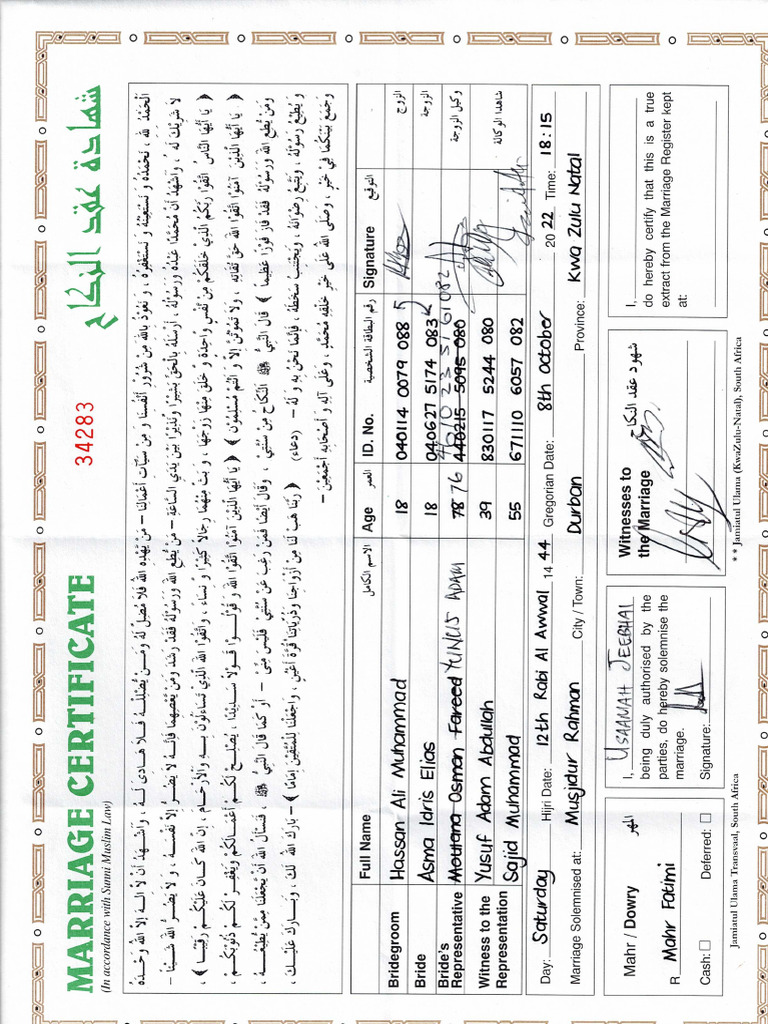 MARRIAGE CERTIFICATE 34283 شهادة عقد النكاح
(In accordance with Sunni Muslim Law)
اَلْحَمْدُ للهِ ، نَحْمَدُهُ وَ نَسْتَعِيْنُهُ وَ نَسْتَغْفِرُهُ ، وَ نَعُوْذُ بِاللهِ مِنْ شُرُوْرِ أَنْفُسِنَا وَ مِنْ سَيِّآتِ أَعْمَالِنَا – مَنْ يَهْدِهِ اللهُ فَلَا مُضِلَّ لَهُ وَمَـنْ يُضْلِلْـهُ فَـلَا هَادِيَ لَـهُ ، وَأَشْـهَدُ أَنْ لَا إِلَـهَ إِلَّا اللهُ وَحْـدَهُ
لَا شَرِيْكَ لَهُ ، وَأَشْهَدُ أَنَّ مُحَمَّدًا عَبْدُهُ وَرَسُوْلُهُ ، أَرْسَلَهُ بِالْحَقِّ بَشِيْرًا وَنَذِيْرًا بَيْنَ يَدَيِ السَّاعَةِ – مَنْ يُطِعِ اللهَ وَرَسُوْلَهُ فَقَدْ رَشَدَ وَمَنْ يَعْصِهِمَا فَإِنَّـهُ لَا يَضُـرُّ إِلَّا نَفْسَـهُ ، وَ لَا يَضُـرُّ اللهَ شَـيْئًا –
﴿ يَا أَيُّهَا النَّاسُ اتَّقُوْا رَبَّكُمُ الَّذِيْ خَلَقَكُمْ مِنْ نَفْسٍ وَاحِدَةٍ وَ خَلَقَ مِنْهَا زَوْجَهَا ، وَ بَثَّ مِنْهُمَا رِجَالًا كَثِيْرًا وَ نِسَاءً ، وَاتَّقُوا اللهَ الَّذِيْ تَسَاءَلُوْنَ بِـهِ وَالْأَرْحَـامَ ، إِنَّ اللهَ كَـانَ عَلَيْكُـمْ رَقِيْبًـا ﴾ ،
﴿ يَا أَيُّهَا الَّذِيْنَ آمَنُوْا اتَّقُوْا اللهَ حَقَّ تُقَاتِهِ ، وَلَا تَمُوْتُنَّ إِلَّا وَ أَنْتُمْ مُسْلِمُوْنَ ﴾ ﴿ يَا أَيُّهَا الَّذِيْنَ آمَنُوْا اتَّقُوْا اللهَ وَ قُوْلُـوْا قَـوْلًا سَـدِيْدًا يُصْلِـحْ لَكُـمْ أَعْمَـالَكُمْ وَيَغْفِـرْ لَكُـمْ ذُنُوْبَكُـمْ ،
وَمَنْ يُطِعِ اللهَ وَرَسُوْلَهُ فَقَدْ فَازَ فَوْزًا عَظِيْمًا ﴾ قَالَ النَّبِيُّ ﷺ النِّكَاحُ مِنْ سُنَّتِيْ ، وَقَالَ أَيْضًا فَمَنْ رَغِبَ عَنْ سُنَّتِيْ فَلَيْسَ مِنِّيْ – أَوْ كَمَا قَالَ النَّبِيُّ ﷺ ، فَنَسْأَلُ اللهَ أَنْ يَجْعَلَنَا مِمَّنْ يُطِيْعُـهُ ،
وَ يُطِيْعُ رَسُوْلَهُ ، وَيَتَّبِعُ رِضْوَانَهُ ، وَيَجْتَنِبُ سَخَطَهُ ، فَإِنَّمَا نَحْنُ بِهِ وَ لَهُ – (دعاء) ﴿ رَبَّنَا هَبْ لَنَا مِنْ أَزْوَاجِنَا وَذُرِّيَّاتِنَا قُرَّةَ أَعْيُنٍ ، وَاجْعَلْنَا لِلْمُتَّقِيْنَ إِمَامًا ﴾ – بَارَكَ اللهُ لَكَ ، وَبَـارَكَ عَلَيْـكَ ،
وَجَمَعَ بَيْنَكُمَا فِيْ خَيْرٍ ، وَصَلَّى اللهُ عَلَى خَيْرِ خَلْقِهِ مُحَمَّدٍ ، وَعَلَى آلِهِ وَ أَصْحَابِهِ أَجْمَعِيْنَ –
Full Name الاسم الكامل Age العمر ID. No. رقم البطاقة الشخصية Signature التوقيع
Bridegroom Hassan Ali Muhammad 18 040114 0079 088 5 الزوج
Bride Asma Idris Elias 18 040627 5174 083 الزوجة
Bride's Representative Moulana Osman Fareed YUNUS ADAM 78 76 440215 5095 080 461023 5161 082 وكيل الزوجة
Witness to the Representation Yusuf Adam Abdullah 39 830117 5244 080 شاهدا الوكالة
Sajid Muhammad 55 671110 6057 082
Day: Saturday Hijri Date: 12th Rabi Al Awwal 14 44 Gregorian Date: 8th october 20 22 Time: 18:15
Marriage Solemnised at: Musjidur Rahman City / Town: Durban Province: Kwa Zulu Natal
Mahr / Dowry المهر
R Mahr Fatimi
Cash: ☐ Deferred: ☐
I, USAAMAH JEEBHAI
being duly authorised by the
parties, do hereby solemnise the
marriage.
Signature:
Witnesses to the Marriage شهود عقد النكاح
I,
do hereby certify that this is a true
extract from the Marriage Register kept
at:
Jamiatul Ulama Transvaal, South Africa
* * Jamiatul Ulama (KwaZulu-Natal), South Africa